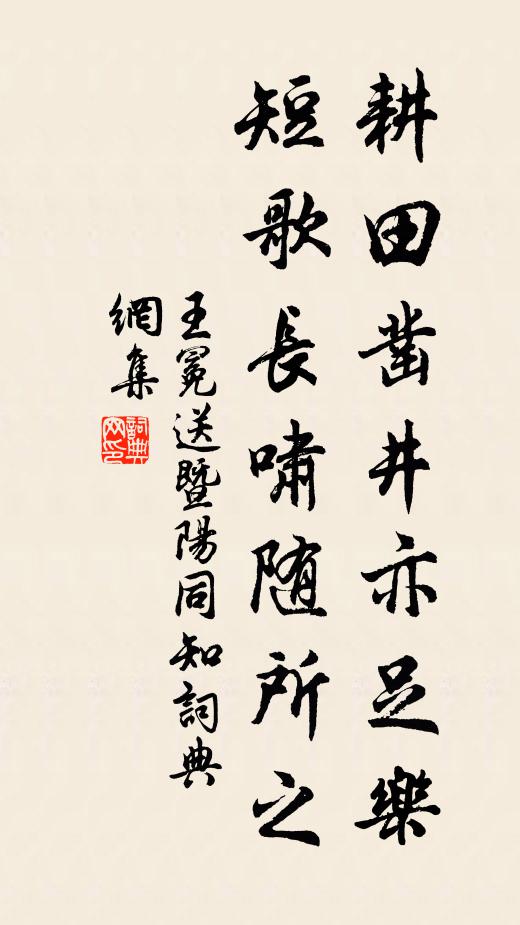 耕田凿井亦足樂
短歌長嘯随所之
王冕送暨陽同知詞典
網集
詞典
网印